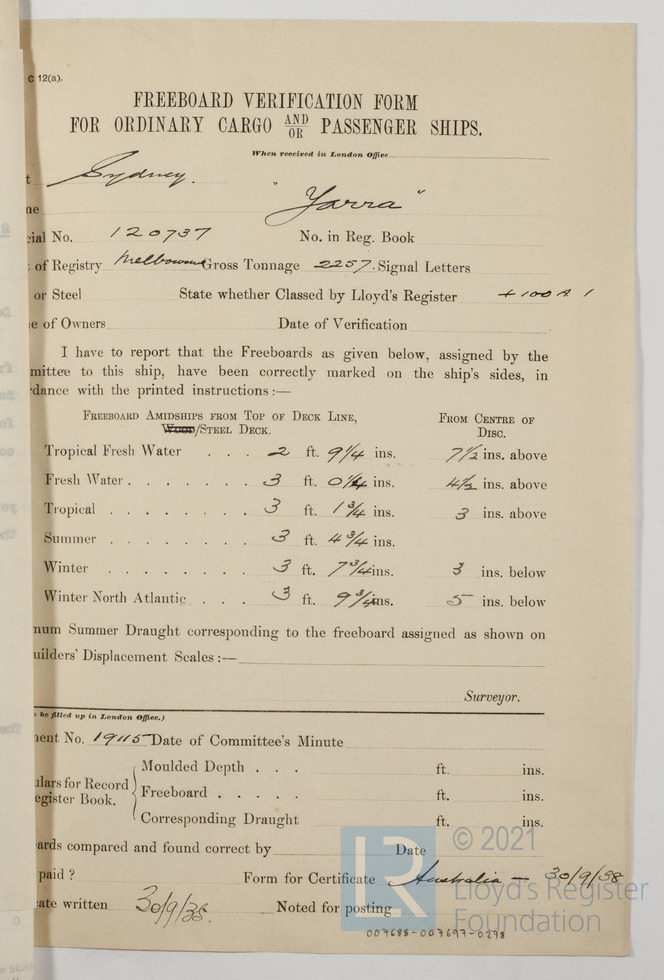 C 12(a).
FREEBOARD VERIFICATION FORM
FOR ORDINARY CARGO AND/OR PASSENGER SHIPS.
When received in London Office
t Sydney.
ne "Yarra"
cial No. 120737 No. in Reg. Book
of Registry Melbourne Gross Tonnage 2257. Signal Letters
or Steel State whether Classed by Lloyd's Register + 100 A 1
e of Owners Date of Verification
I have to report that the Freeboards as given below, assigned by the
mmittee to this ship, have been correctly marked on the ship's sides, in
rdance with the printed instructions :—
FREEBOARD AMIDSHIPS FROM TOP OF DECK LINE, FROM CENTRE OF
WOOD/STEEL DECK. DISC.
Tropical Fresh Water . . . 2 ft. 9 1/4 ins. 7 1/2 ins. above
Fresh Water . . . . . . . 3 ft. 0 1/4 ins. 4 1/2 ins. above
Tropical . . . . . . . . 3 ft. 1 3/4 ins. 3 ins. above
Summer . . . . . . . . 3 ft. 4 3/4 ins.
Winter . . . . . . . . 3 ft. 7 3/4 ins. 3 ins. below
Winter North Atlantic . . . 3 ft. 9 3/4 ins. 5 ins. below
mum Summer Draught corresponding to the freeboard assigned as shown on
uilders' Displacement Scales :—
Surveyor.
be filled up in London Office.)
ment No. 19115 Date of Committee's Minute
Moulded Depth . . . ft. ins.
ulars for Record
egister Book.
Freeboard . . . . . ft. ins.
Corresponding Draught ft. ins.
ards compared and found correct by Date
paid ? Form for Certificate Australia — 30/9/38
cate written 30/9/38. Noted for posting
007688-007697-0278
LR
© 2021
Lloyd's Register
Foundation